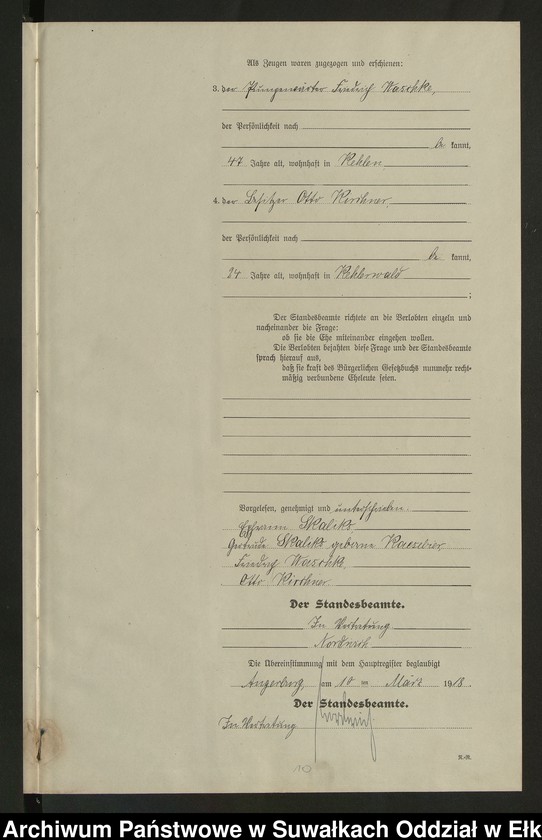 Als Zeugen waren zugezogen und erschienen:
3. der Friedrich Waschke,
der Persönlichkeit nach
be kannt,
47 Jahre alt, wohnhaft in Kehlen
4. der Besitzer Otto Kirschner
der Persönlichkeit nach
be kannt,
34 Jahre alt, wohnhaft in Kehlerwald
;
Der Standesbeamte richtete an die Verlobten einzeln und
nacheinander die Frage:
ob sie die Ehe miteinander eingehen wollen.
Die Verlobten bejahten diese Frage und der Standesbeamte
sprach hierauf aus,
daß sie kraft des Bürgerlichen Gesetzbuchs nunmehr recht-
mäßig verbundene Eheleute seien.
Vorgelesen, genehmigt und unterschrieben:
Skaliks
Gertrude Skaliks geborene Kaeseler
Friedrich Waschke
Otto Kirschner
Der Standesbeamte.
In Vertretung
Die Übereinstimmung mit dem Hauptregister beglaubigt
Angerburg, am 10 ten März 1918.
Der Standesbeamte.
In Vertretung
K.-R.
Archiwum Państwowe w Suwałkach Oddział w Ełku